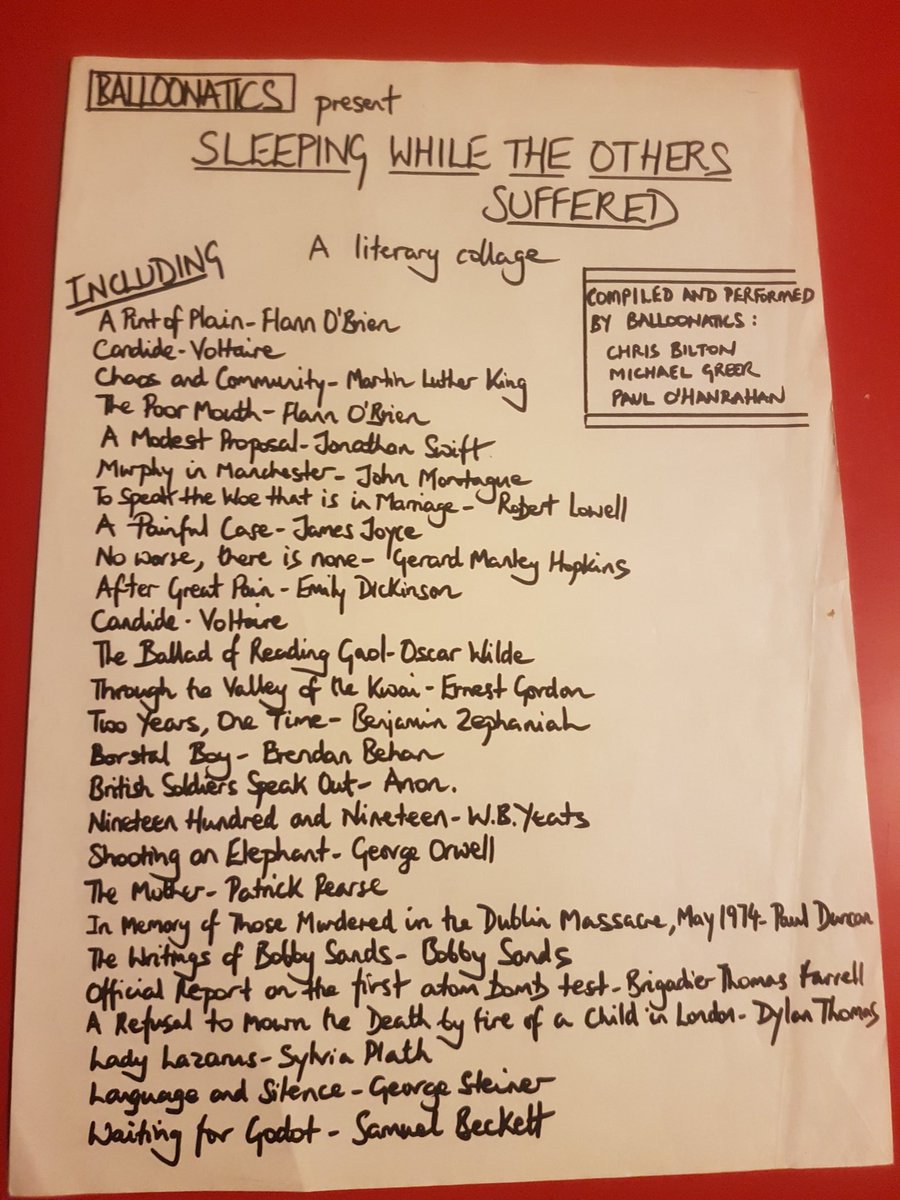 BALLOONATICS present
SLEEPING WHILE THE OTHERS
SUFFERED
A literary collage
INCLUDING
COMPILED AND PERFORMED
BY BALLOONATICS:
CHRIS BILTON
MICHAEL GREER
PAUL O'HANRAHAN
A Pint of Plain - Flann O'Brien
Candide - Voltaire
Chaos and Community - Martin Luther King
The Poor Mouth - Flann O'Brien
A Modest Proposal - Jonathan Swift
Murphy in Manchester - John Montague
To Speak the Woe that is in Marriage - Robert Lowell
A Painful Case - James Joyce
No worse, there is none - Gerard Manley Hopkins
After Great Pain - Emily Dickinson
Candide - Voltaire
The Ballad of Reading Gaol - Oscar Wilde
Through the Valley of the Kwai - Ernest Gordon
Two Years, One Time - Benjamin Zephaniah
Borstal Boy - Brendan Behan
British Soldiers Speak Out - Anon.
Nineteen Hundred and Nineteen - W.B. Yeats
Shooting an Elephant - George Orwell
The Mother - Patrick Pearse
In Memory of Those Murdered in the Dublin Massacre, May 1974 - Paul Durcan
The Writings of Bobby Sands - Bobby Sands
Official Report on the first atom bomb test - Brigadier Thomas Farrell
A Refusal to Mourn the Death by fire of a Child in London - Dylan Thomas
Lady Lazarus - Sylvia Plath
Language and Silence - George Steiner
Waiting for Godot - Samuel Beckett